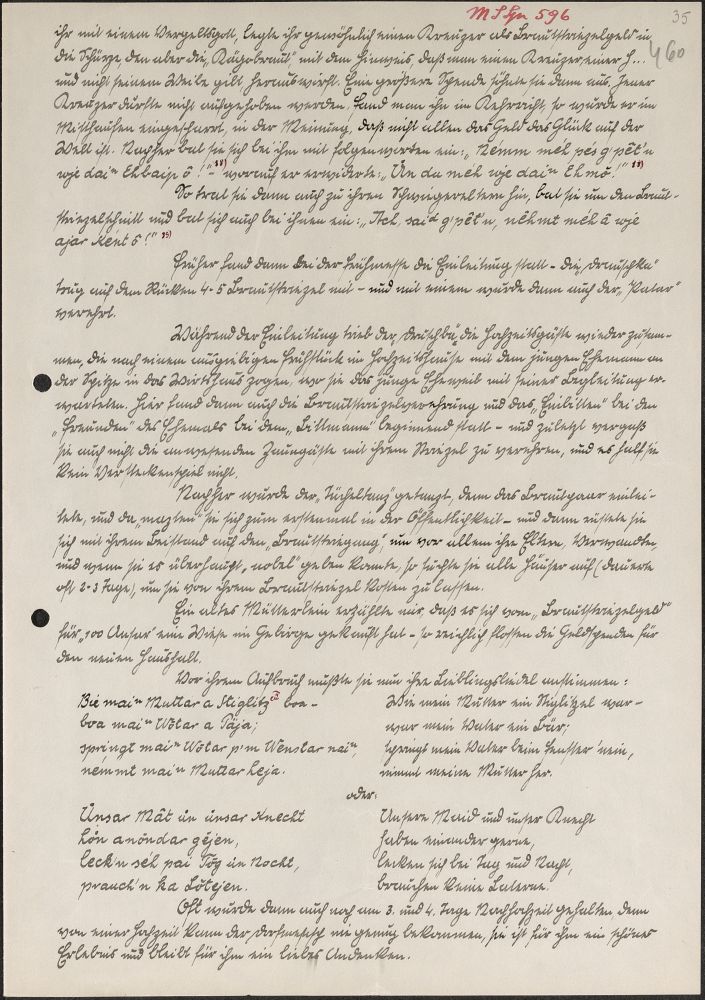 MS Gr. 596
35
460
ihr mit einem Vergeltsgott, legte ihr gewöhnlich einen Kreuzer als Brautstriezelgeld in
die Schürze, den aber die „ mit dem Hinweis, daß man einen Kreuzer einer H...
und nicht seinem Weibe gibt herauswirft. Eine größere Spende söhnte sie dann aus. Jener
Kreuzer durfte nicht aufgehoben werden. Fand man ihn im Kehricht, so wurde er im
Misthaufen eingescharrt, in der Meinung, daß nicht allen das Geld das Glück auf der
Welt ist. Nachher bat sie sich bei ihm mit folgenworten ein: „Nemm mëh pes g'pët'n
wje daiⁿ Ehbaip ö!" worauf er erwiderte: „Un du mëh wje daiⁿ Ehmö!"
So trat sie dann auch zu ihren Schwiegereltern hin, bat sie um den Braut-
striezelschnitt und bat sich auch bei ihnen ein: „Ach, said g'pët'n, nëhmt mëh ä wje
ajar Kënt ö!"
Früher fand dann bei der Frühmesse die Einleitung statt – die „Drauschka"
trug auf dem Rücken 4-5 Brautstriezel mit – und mit einem wurde dann auch der „Patar"
verehrt.
Während der Einleitung trieb der „Druschba" die Hochzeitsgäste wieder zusam-
men, die nach einem ausgiebigen Frühstück im Hochzeitshause mit dem jungen Ehemann an
der Spitze in das Wirtshaus zogen, wo sie das junge Eheweib mit seiner Begleitung er-
warteten. Hier fand dann auch die Brautstriezelverehrung und das „Einbitten" bei den
„Freunden" des Ehemals bei dem „Bittmann" beginnend statt – und zuletzt vergaß
sie auch nicht die anwesenden Zaungäste mit ihrem Striezel zu verehren, und es half sie
kein Versteckenspiel nicht.
Nachher wurde der „Tücheltanz" getanzt, denn das Brautpaar einlei-
tete, und da „ sie sich zum erstenmal in der Öffentlichkeit – und dann rüstete sie
sich mit ihrem Beistand auf den „Brautstriegang" um vor allem ihre Eltern, Verwandten,
und wenn sie es überhaupt „nobel" geben konnte, so suchte sie alle Häuser auf (dauerte
oft 2-3 Tage), um sie von ihrem Brautstriezel kosten zu lassen.
Ein altes Mütterlein erzählte mir, daß es sich vom „Brautstriezelgeld"
für „100 Ansar" eine Wiese im Gebirge gekauft hat – so reichlich flossen die Geldspenden für
den neuen Haushalt.
Vor ihrem Aufbruch mußte sie nun ihre Lieblingsliedel anstimmen:
Bie maiⁿ Muttar a Stiglitz boa –
boa maiⁿ Wötar a Päja;
springt maiⁿ Wötar p'm Wenstar naiⁿ,
nemmt maiⁿ Muttar heja.
Wie mein Mutter ein Stiglizel war –
war mein Vater ein Bär;
springt mein Vater beim Fenster 'nein,
nimmt meine Mutter her.
oder:
Unsar Mät ün ünsar Knecht
hön anöndar gëjen,
leck'n sëh pai Tög ün Nocht,
prauch'n ka Lötejen.
Unsere Maid und unser Knecht
haben einander gerne,
lecken sich bei Tag und Nacht,
brauchen keine Laterne.
Oft wurde dann auch noch am 3. und 4. Tage Nachhochzeit gehalten, denn
von einer Hochzeit kann der Dorfmensch nie genug bekommen, sie ist für ihm ein schönes
Erlebnis und bleibt für ihm ein liebes Andenken.